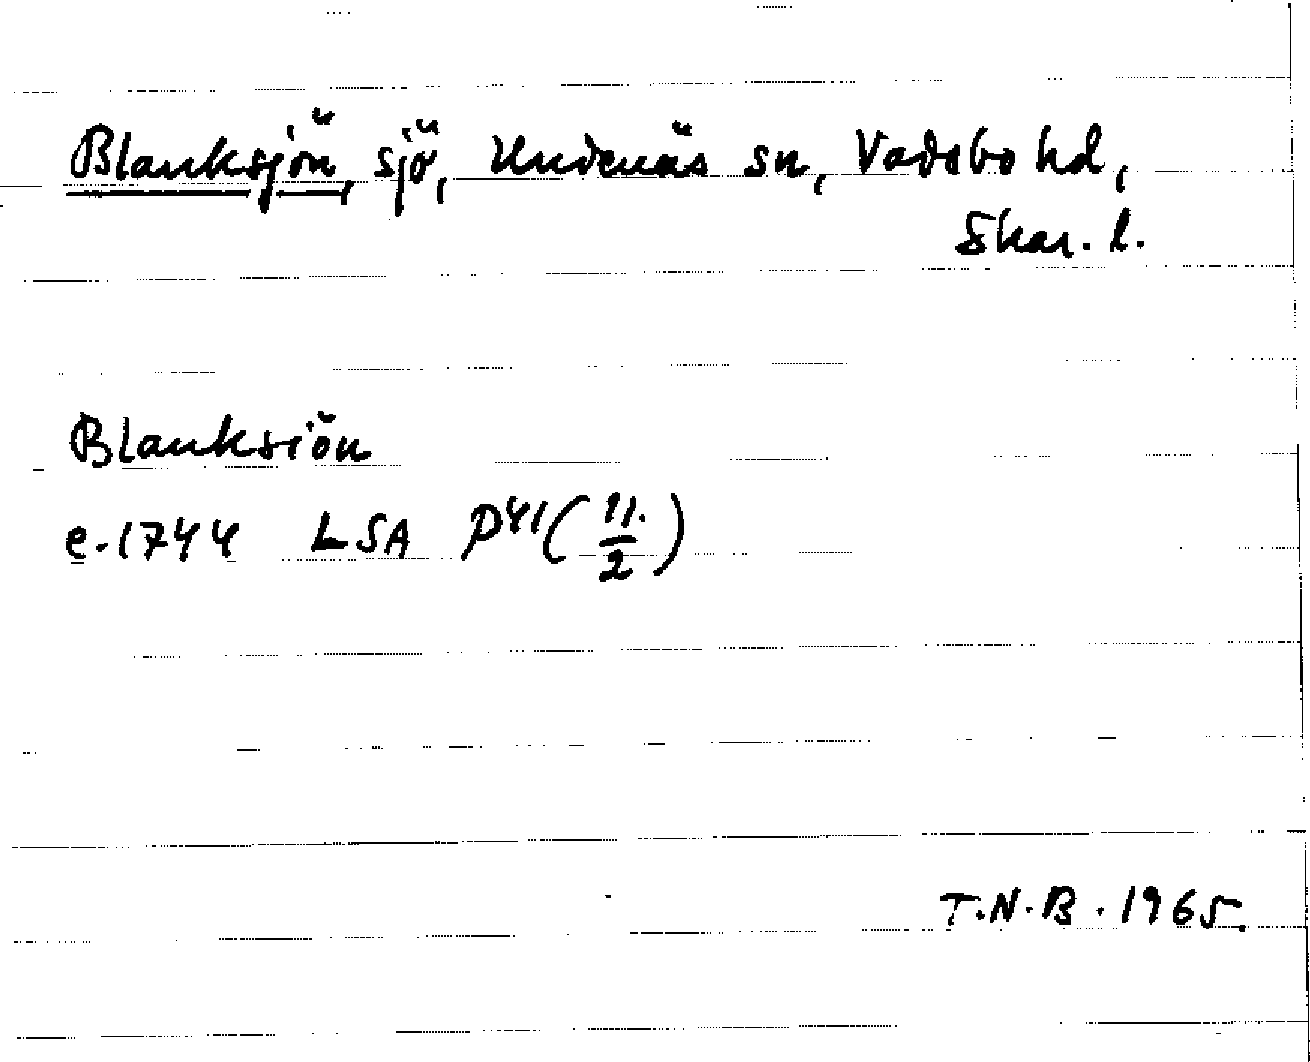 Blanksjön, sjö, Undenäs sn, Vadsbo hd,
Skar. l.
Blanksiön
e. 1744 LSA P41 (11./2)
T.N.B. 1965.